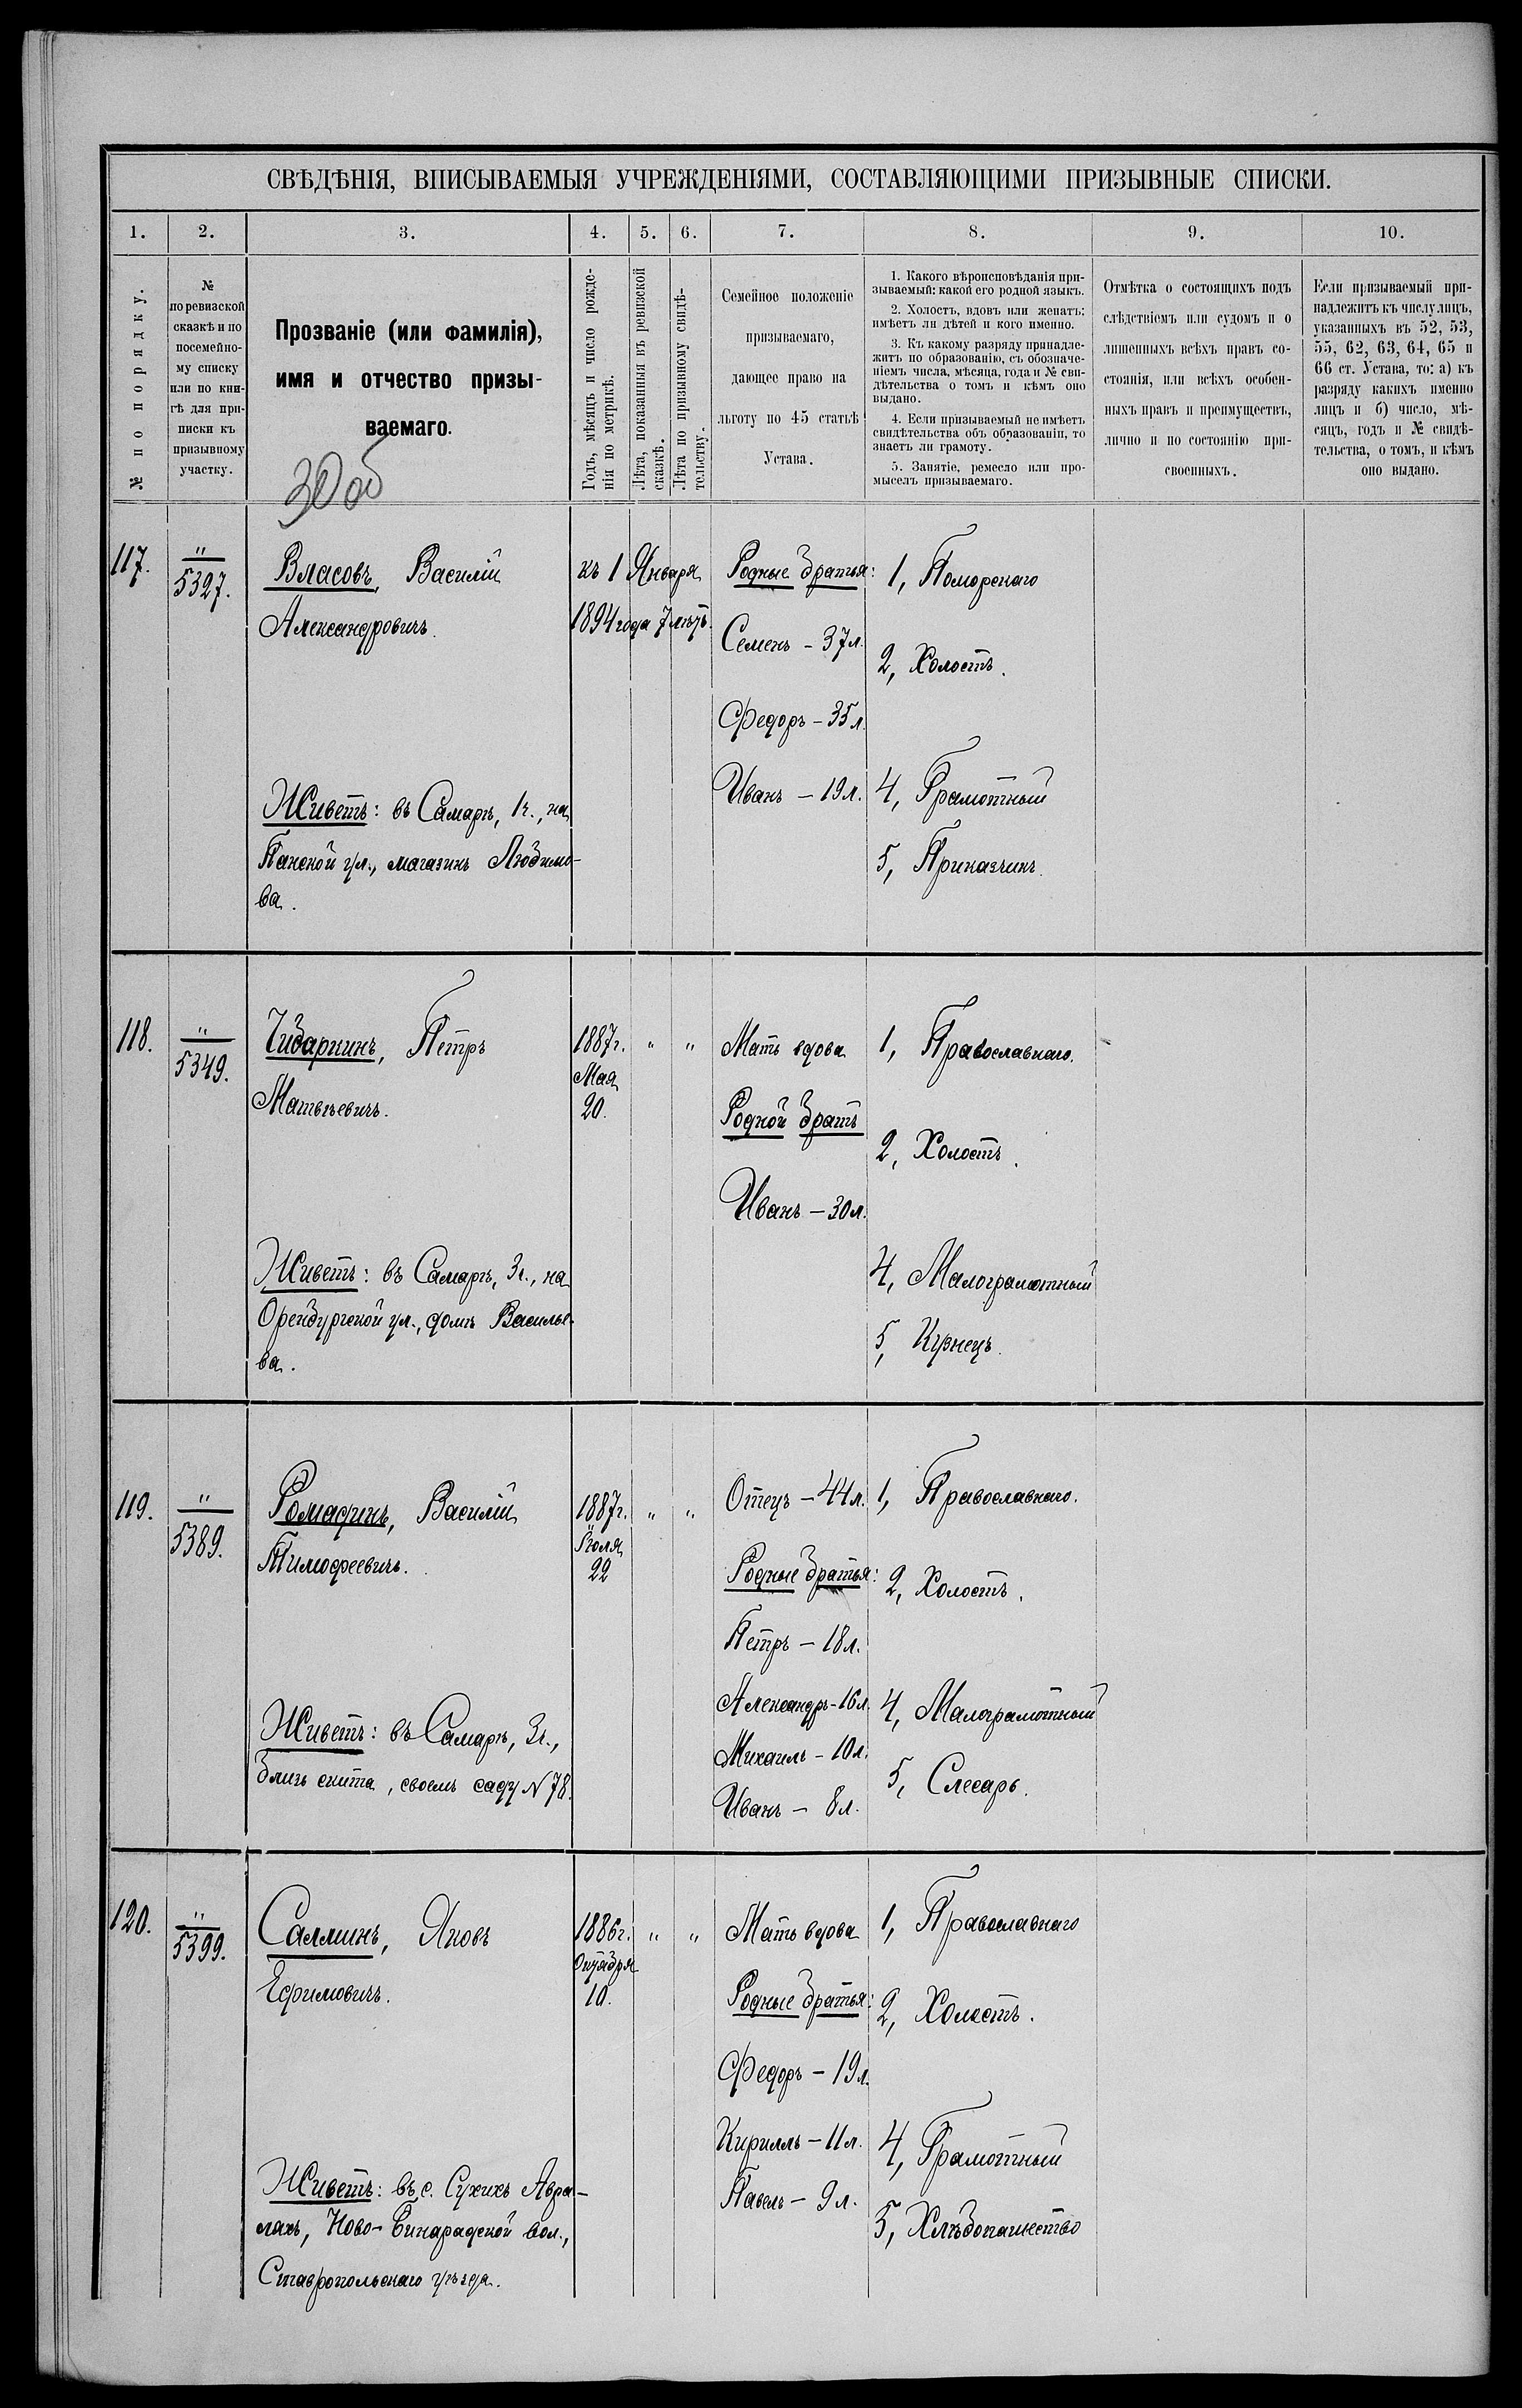 СВѢДѢНІЯ, ВПИСЫВАЕМЫЯ УЧРЕЖДЕНІЯМИ, СОСТАВЛЯЮЩИМИ ПРИЗЫВНЫЕ СПИСКИ.
1. 2. 3. 4. 5. 6. 7. 8. 9. 10.
№ по порядку.
№
по ревизской
сказкѣ и по
посемейно-
му списку
или по кни-
гѣ для при-
писки къ
призывному
участку.
Прозваніе (или фамилія),
имя и отчество призы-
ваемаго.
30 об
Годъ, мѣсяцъ и число рожде-
нія по метрикѣ.
Лѣта, показанныя въ ревизской
сказкѣ.
Лѣта по призывному свидѣ-
тельству.
Семейное положеніе
призываемаго,
дающее право на
льготу по 45 статьѣ
Устава.
1. Какого вѣроисповѣданія при-
зываемый: какой его родной языкъ.
2. Холостъ, вдовъ или женатъ:
имѣетъ ли дѣтей и кого именно.
3. Къ какому разряду принадле-
житъ по образованію, съ обозначе-
ніемъ числа, мѣсяца, года и № сви-
дѣтельства о томъ и кѣмъ оно
выдано.
4. Если призываемый не имѣетъ
свидѣтельства объ образованіи, то
знаетъ ли грамоту.
5. Занятіе, ремесло или про-
мыселъ призываемаго.
Отмѣтка о состоящихъ подъ
слѣдствіемъ или судомъ и о
лишенныхъ всѣхъ правъ со-
стоянія, или всѣхъ особен-
ныхъ правъ и преимуществъ,
лично и по состоянію при-
своенныхъ.
Если призываемый при-
надлежитъ къ числу лицъ,
указанныхъ въ 52, 53,
55, 62, 63, 64, 65 и
66 ст. Устава, то: а) къ
разряду какихъ именно
лицъ и б) число, мѣ-
сяцъ, годъ и № свидѣ-
тельства, о томъ, и кѣмъ
оно выдано.
117.
"
5327.
Власовъ, Василій
Александровичъ.
Живетъ: въ Самарѣ, 1ч., на
Панской ул., магазинъ Любимо-
ва.
къ 1 Января
1894 года 7 лѣтъ.
Родные братья:
Семенъ - 37 л.
Федоръ - 35 л.
Иванъ - 19 л.
1, Поморскаго
2, Холостъ.
4, Грамотный
5, Приказчикъ.
118.
"
5349.
Чибаркинъ, Петръ
Матвѣевичъ.
Живетъ: въ Самарѣ, 3ч., на
Оренбургской ул., домъ Василье-
ва.
1887г. " "
Мая
20.
Мать вдова
Родной братъ
Иванъ - 30 л.
1, Православнаго.
2, Холостъ.
4, Малограмотный
5, Кузнецъ.
119.
"
5389.
Ромадинъ, Василій
Тимофеевичъ.
Живетъ: въ Самарѣ, 3ч.,
близь скита, своемъ саду N 78.
1887г. " "
Іюля
22
Отецъ - 44 л.
Родные братья:
Петръ - 18 л.
Александръ - 16 л.
Михаилъ - 10 л.
Иванъ - 8 л.
1, Православнаго.
2, Холостъ.
4, Малограмотный
5, Слесарь.
120.
"
5399.
Саллинъ, Яковъ
Ефимовичъ.
Живетъ: въ с. Сухихъ Авра-
лахъ, Ново-Бинарадской вол.,
Ставропольскаго уѣзда.
1886г. " "
Октября
10.
Мать вдова
Родные братья:
Федоръ - 19 л.
Кириллъ - 11 л.
Павелъ - 9 л.
1, Православнаго
2, Холостъ.
4, Грамотный
5, Хлѣбопашество